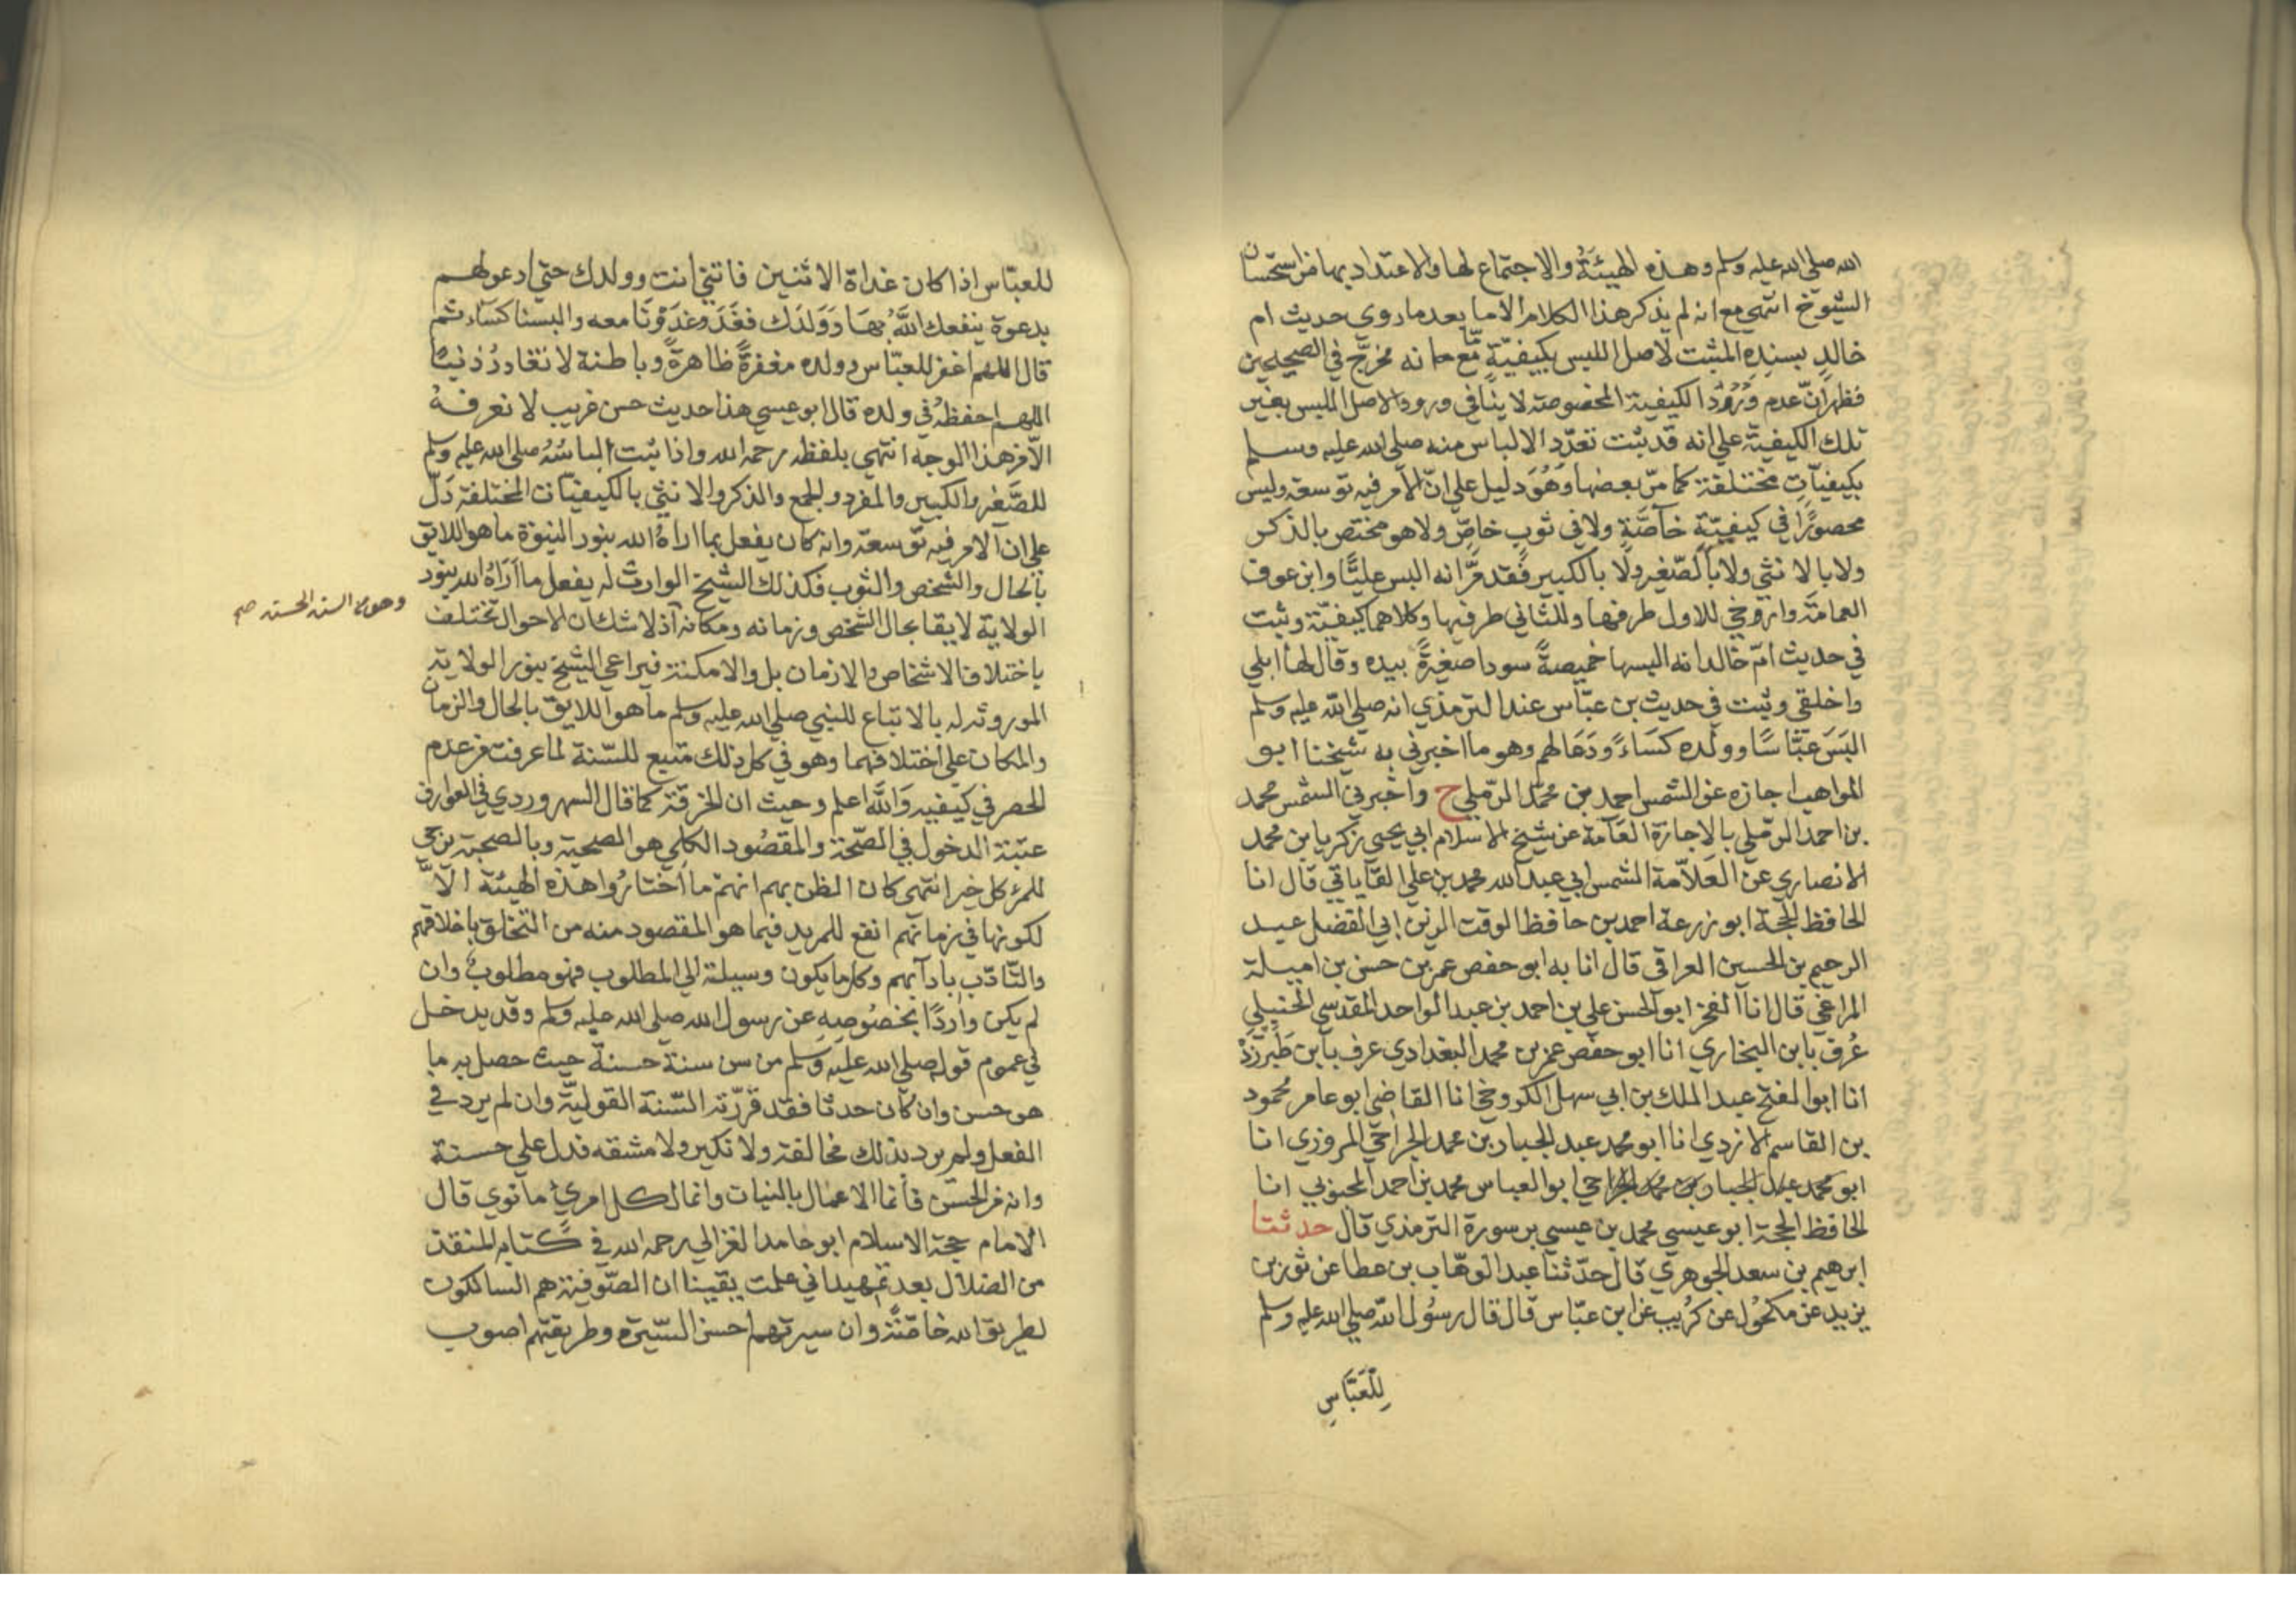 الله صلى الله عليه وسلم وهذه الهيئة والاجتماع لها والاعتداد بها من استحسان
الشيوخ انتهى مع انه لم يذكر هذا الكلام الا ما بعد ما روى حديث ام
خالد بسنده المثبت لاصل اللبس بكيفيّةٍ مّا مع انه مخرّج في الصحيحين
فظهر انّ عدم وُرُوْد الكيفية المخصوصة لا ينافي ورود الاصل الملبس بغير
تلك الكيفية على انه قد يثبت تعدّد الالباس منه صلى الله عليه وسلم
بكيفيّاتٍ مختلفة كما مرّ بعضها وَهُوَ دليل على انّ الامر فيه توسعة وليس
محصورًا في كيفيّةٍ خاصَّةٍ ولا في ثوبٍ خاصٍّ ولا هو مختص بالذكر
ولا بالانثى ولا بالصّغير ولا بالكبير فقد مرَّ انه البس عليًّا وابن عوف
العمامة وارخى للاول طرفها وللثاني طرفيها وكلاهما كيفيّة وثبت
في حديث امّ خالد انه البسها خميصةً سودا صغيرةً بيده وقال لها ابلي
واخلقي وثبت في حديث بن عبّاس عند الترمذي انه صلى الله عليه وسلم
البَسَ عبّاسًا وولده كسَاءً ودَعَا لهم وهو ما اخبرني به شيخنا ابو
المواهب اجازه عن الشمس احمد بن محمّد الرّملي ح واخبرني الشمس محمد
بن احمد الرّملي بالاجازة العَآمة عن شيخ الاسلام ابي يحيى زكريا بن محمد
الانصاري عن العَلاّمة الشمس ابي عبد الله محمد بن علي القاياتي قال انا
الحافظ الحجة ابو زرعة احمد بن حافظ الوقت الزين ابي الفضل عبد
الرحيم بن الحسين العراقي قال انا به ابو حفص عمر بن حسن بن اميلة
المراغي قال انا الفخر ابو الحسن علي بن احمد بن عبد الواحد المقدسي الحنبلي
عُرف بابن البخاري انا ابو حفص عمر بن محمد البغدادي عرف بابن طَبَرْزَدْ
انا ابو الفتح عبد الملك بن ابي سهل الكروخي انا القاضي ابو عامر محمود
بن القاسم الازدي انا ابو محمد عبد الجبار بن محمد الجراحي المروزي انا
ابو محمد عبد الجبار بن محمد الجراحي ابو العباس محمد بن احمد المحبوبي انا
الحافظ الحجة ابو عيسى محمد بن عيسى بن سورة الترمذي قال حدثنا
ابرهيم بن سعد الجوهري قال حدّثنا عبد الوهّاب بن عطا عن ثور بن
يزيد عن مكحُول عن كرُيب عن ابن عبّاس قال قال رسُول الله صلى الله عليه وسلم
لِلْعَبَّاسِ
للعبّاس اذا كان غداة الاثنين فاتني انت وولدك حتى ادعو لهم
بدعوة ينفعك اللَّهُ بهَا وَوَلَدَك فغَدَا وغدَوْنَا معه والبسنا كسَاء ثم
قال اللهم اغفر للعبّاس وولده مغفرةً ظاهرةً وباطنة لا تغادرُ ذنبًا
اللهم احفظهُ في ولده قال ابو عيسى هذا حديث حسن غريب لا نعرفهُ
الّا من هذا الوجه انتهى بلفظه رحمه الله واذا ثبت الباسُهُ صلى الله عليه وسلم
للصَّغير والكبير والمفرد والجمع والذكر والانثى بالكيفيّات المختلفة دَلّ
على ان الامر فيه توسعة وانه كان يفعل بما اراهُ الله بنور النبوّة ما هو اللايق
بالحال والشخص والثوب فكذلك الشيخ الوارث له يفعل ما اَرَاهُ الله بنور
الولاية لايقا بحال الشخص وزمانه ومكانه اذ لا شك ان الاحوال تختلف
وهو من السنة الحسنة صح
باختلاف الاشخاص والازمان بل والامكنة فيراعي الشيخ بنور الولاية
الموروثه له بالاتباع للنبي صلى الله عليه وسلم ما هو اللايق بالحال والزمان
والمكان على اختلافهما وهو في كل ذلك متبع للسّنة لما عرفت من عدم
الحصر في كيفيه وَاللّه اعلم وحيث ان الخرقة كما قال السهروردي في العوارف
عتبة الدخول في الصّحبة والمقصُود الكلي هو الصحبة وبالصحبة يرجى
للمرء كل خير انتهى كان الظن بهم انهم ما اختارُوا هذه الهيئة الاّ
لكونها في زمانهم انفع للمريد فيما هو المقصود منه من التخلّق باخلاقهم
والتّادّب بادابهم وكل ما يكون وسيلة الى المطلوب فهو مطلوبٌ وان
لم يكن واردًا بخصُوصِهِ عن رسول الله صلى الله عليه وسلم وقد يدخل
في عموم قوله صلى الله عليه وسلم من سن سنة حسنة حيث حصل به ما
هو حسن وان كان حدثا فقد قرّرته السّنة القوليّة وان لم يرد في
الفعل ولم يرد بذلك مخالفة ولا نكير ولا مشقه فدل على حسنة
وانه من الحسن فانما الاعمال بالنيات وانما لكل امرئ ما نوى قال
الامام حجة الاسلام ابو حامد الغزالي رحمه الله في كتابه المنقذ
من الضلال بعد تمهيد اني علمت يقينا ان الصّوفية هم السالكون
لطريق الله خاصّة وان سيرتهم احسن السّيرة وطريقتهم اصوب